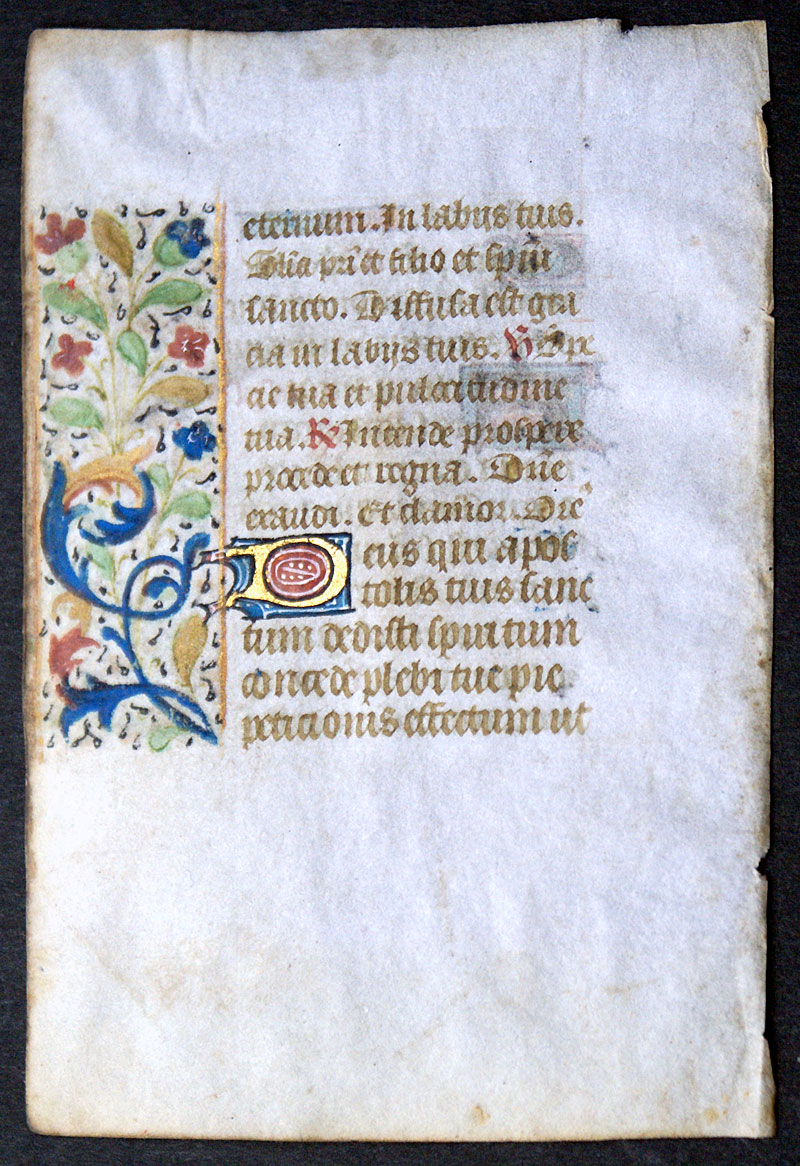 eternum. In labijs tuis.
Glīa pr̄i et filio et spūi
sancto. Diffusa est gra
cia in labijs tuis. V Spe
cie tua et pulcritudine
tua. R Intende prospere
procede et regna. Dn̄e
exaudi. Et clamor. Ore
Deus qui apos
tolis tuis sanc
tum dedisti spiritum
concede plebi tue pie
peticionis effectum ut